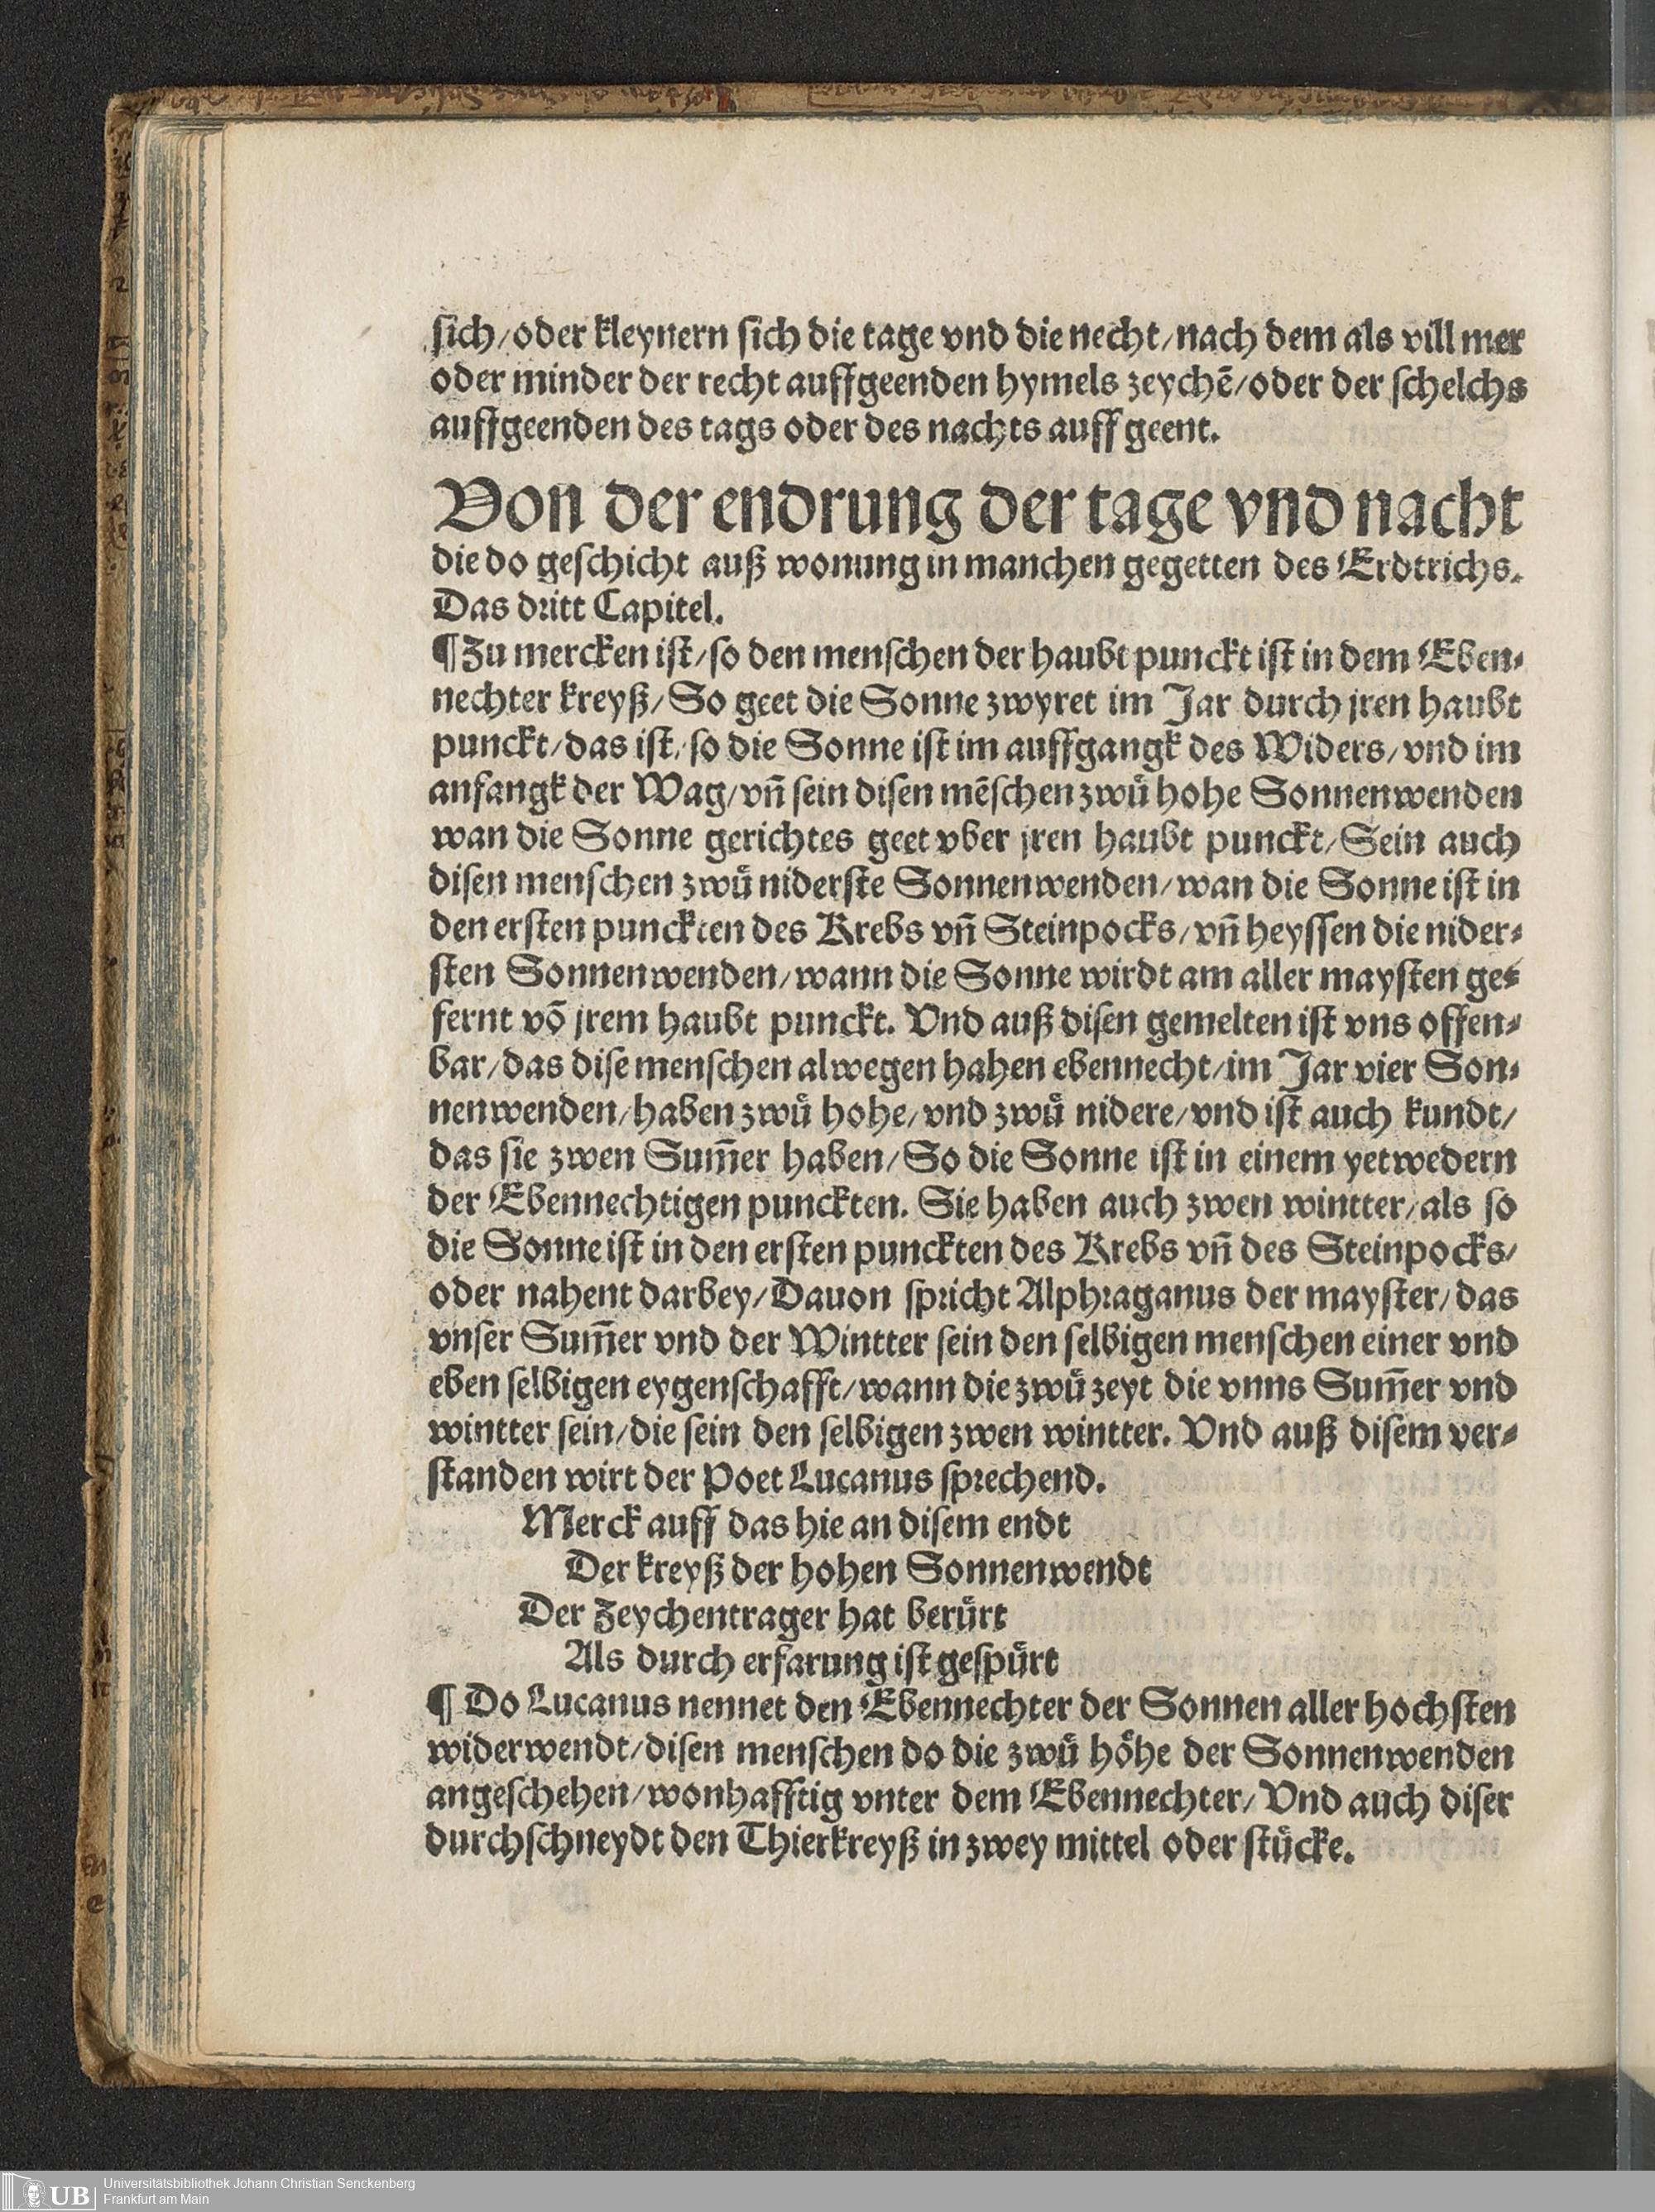 sich/oder kleynern sich die tage vnd die necht/nach dem als vill mer
oder minder der recht auffgeenden hymels zeychē/oder der schelchs
auffgeenden des tags oder des nachts auff geent.
Von der endrung der tage vnd nacht
die do geschicht auß wonung in manchen gegetten des Erdtrichs.
Das dritt Capitel.
¶Zu mercken ist/so den menschen der haubt punckt ist in dem Eben⸗
nechter kreyß/So geet die Sonne zwyret im Jar durch jren haubt
punckt/das ist/so die Sonne ist im auffgangk des Widers/vnd im
anfangk der Wag/vñ sein disen mēschen zwuͤ hohe Sonnenwenden
wan die Sonne gerichtes geet vber jren haubt punckt/Sein auch
disen menschen zwuͤ niderste Sonnenwenden/wan die Sonne ist in
den ersten punckten des Krebs vñ Steinpocks/vñ heyssen die nider⸗
sten Sonnenwenden/wann die Sonne wirdt am aller maysten ge⸗
fernt võ jrem haubt punckt. Vnd auß disen gemelten ist vns offen⸗
bar/das dise menschen alwegen hahen ebennecht/im Jar vier Son⸗
nenwenden/haben zwuͤ hohe/vnd zwuͤ nidere/vnd ist auch kundt/
das sie zwen Sum̄er haben/So die Sonne ist in einem yetwedern
der Ebennechtigen punckten. Sie haben auch zwen wintter/als so
die Sonne ist in den ersten punckten des Krebs vñ des Steinpocks/
oder nahent darbey/Dauon spricht Alphraganus der mayster/das
vnser Sum̄er vnd der Wintter sein den selbigen menschen einer vnd
eben selbigen eygenschafft/wann die zwuͤ zeyt die vnns Sum̄er vnd
wintter sein/die sein den selbigen zwen wintter. Vnd auß disem ver⸗
standen wirt der Poet Lucanus sprechend.
Merck auff das hie an disem endt
Der kreyß der hohen Sonnenwendt
Der Zeychentrager hat beruͤrt
Als durch erfarung ist gespuͤrt
¶ Do Lucanus nennet den Ebennechter der Sonnen aller hochsten
widerwendt/disen menschen do die zwuͤ hoͤhe der Sonnenwenden
angeschehen/wonhafftig vnter dem Ebennechter/Vnd auch diser
durchschneydt den Thierkreyß in zwey mittel oder stuͤcke.
UB
Universitätsbibliothek Johann Christian Senckenberg
Frankfurt am Main